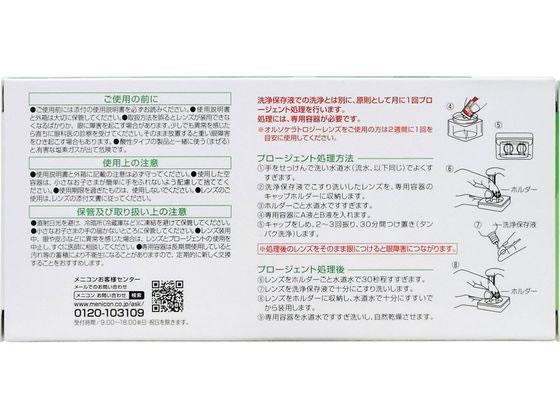 ご使用の前に
●ご使用前には添付の使用説明書を必ずお読みください。●使用説明書
と外箱は大切に保管してください。●取扱方法を誤るとレンズが装用できな
くなるばかりか、眼に障害を起こす場合があります。少しでも異常を感じた
ら直ちに眼科医の診察を受けてください。そのまま放置すると重い眼障害
をひき起こす場合もあります。●酸性タイプの製品と一緒に使う（まぜる）
と有害な塩素ガスが出て危険です。
使用上の注意
●使用説明書と外箱に記載の注意は必ず守ってください。●使用した空
容器は、小さなお子さまが簡単に手をふれないよう配慮して捨ててく
ださい。●使用期限を過ぎたものは、使用しないでください。●レンズのご
使用は、レンズの添付文書に従ってください。
保管及び取り扱い上の注意
●直射日光を避け、冷暗所（冷蔵庫など）に凍結を避けて保管してください。
●小さなお子さまの手の届かないところに保管してください。●レンズ装用
中、眼や皮ふなどに異常を感じた場合は、レンズとプロージェントの使用を
中止し、すぐ医師に相談してください。●専用容器は長期間使用していると
汚れ等の蓄積により不衛生になることがありますので、定期的に新しく交換
することをおすすめします。
メニコンお客様センター
メールでのお問い合わせ
メニコン お問い合わせ 検索
www.menicon.co.jp/ask/
0120-103109
受付時間／9:00〜18:00※日・祝日を除きます。
洗浄保存液での洗浄とは別に、原則として月に1回プロ
ージェント処理を行います。
処理には、専用容器が必要です。
※オルソケラトロジーレンズをご使用の方は2週間に1回を
目安に使用してください。
プロージェント処理方法
①手をせっけんで洗い水道水（流水、以下同じ）でよくす
すぎます。
②洗浄保存液でこすり洗いしたレンズを、専用容器の
キャップホルダーに収納します。
③レンズをホルダーごと水道水ですすぎます。
④専用容器にA液とB液を入れます。
⑤キャップをしめ、2〜3回振り、30分間つけ置き（タン
パク洗浄）します。
※処理後のレンズをそのまま眼につけると眼障害につながります。
プロージェント処理後
⑥レンズをホルダーごと水道水で30秒程すすぎます。
⑦レンズを洗浄保存液で十分にこすり洗いします。
⑧レンズをホルダーに収納し、水道水で十分にすすいで
から装用します。
⑨専用容器を水道水ですすぎ洗いし、自然乾燥させます。
④
⑤
⑥
ホルダー
⑦
洗浄保存液
⑧
ホルダー